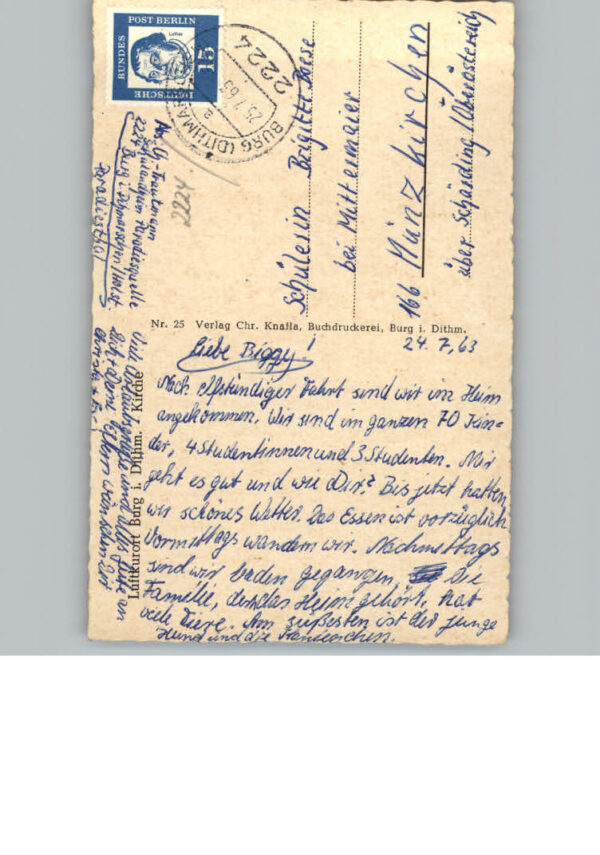 DEUTSCHE
BUNDES
POST BERLIN
Luther
15
BURG (DITHMAR
2224
25.7.63
a
2224
Schülerin Brigitte
bei Mittermaier
166 Münzkirchen
über Schärding/Oberösterreich
Abs. U.
Schülerheim Paradiesquelle
2224 Burg i. Dithmarschen/Holst.
Paradiesthal
Nr. 25 Verlag Chr. Knalla, Buchdruckerei, Burg i. Dithm.
Luftkurort Burg i. Dithm. Kirche
24. 7. 63
Liebe Biggy!
Nach elfstündiger Fahrt sind wir im Heim
angekommen. Wir sind im ganzen 70 Kin-
der, 4 Studentinnen und 3 Studenten. Mir
geht es gut und wie Dir? Bis jetzt hatten
wir schönes Wetter. Das Essen ist vorzüglich
Vormittags wandern wir. Nachmittags
sind wir baden gegangen. Die
Familie, der das Heim gehört, hat
viele Tiere. Am süßesten ist der junge
Hund und die
Viel Urlaubsgrüße und alles Gute an
Dich + Deine Eltern wünschen Dir